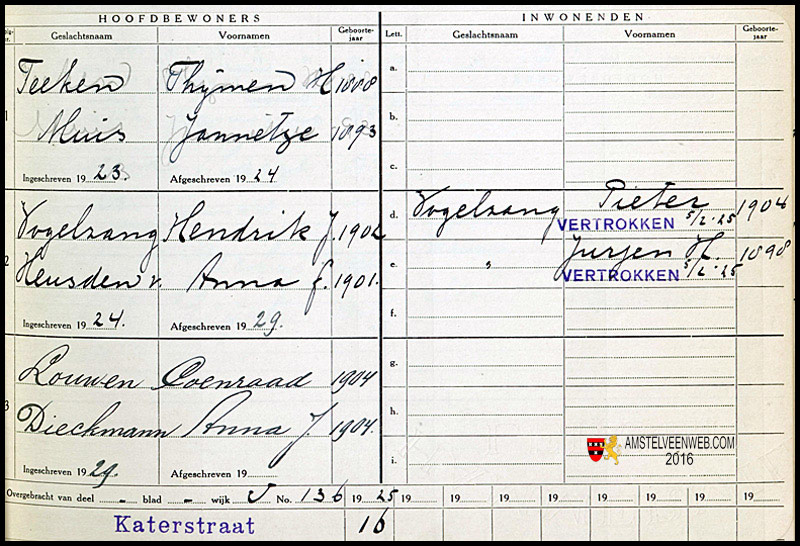 HOOFDBEWONERS
INWONENDEN
Geslachtsnaam Voornamen Geboorte-jaar Lett. Geslachtsnaam Voornamen Geboorte-jaar
Teeken Thijmen H 1888 a.
1 Muis Jannetze 1893 b.
Ingeschreven 19 23. Afgeschreven 19 24 c.
Vogelzang Hendrik J. 1902 d. Vogelzang Pieter 1904
VERTROKKEN 5/2-25
2 Heusden v. Anna f. 1901. e. " Jurjen H. 1898
VERTROKKEN 5/2-25
Ingeschreven 19 24. Afgeschreven 19 29. f.
Louwen Coenraad 1904 g.
3 Dieckmann Anna J. 1904. h.
Ingeschreven 19 29. Afgeschreven 19 i.
AMSTELVEENWEB.COM
2016
Overgebracht van deel - blad - wijk V No. 136 19 25 19 19 19 19 19 19 19 19
Katerstraat 16